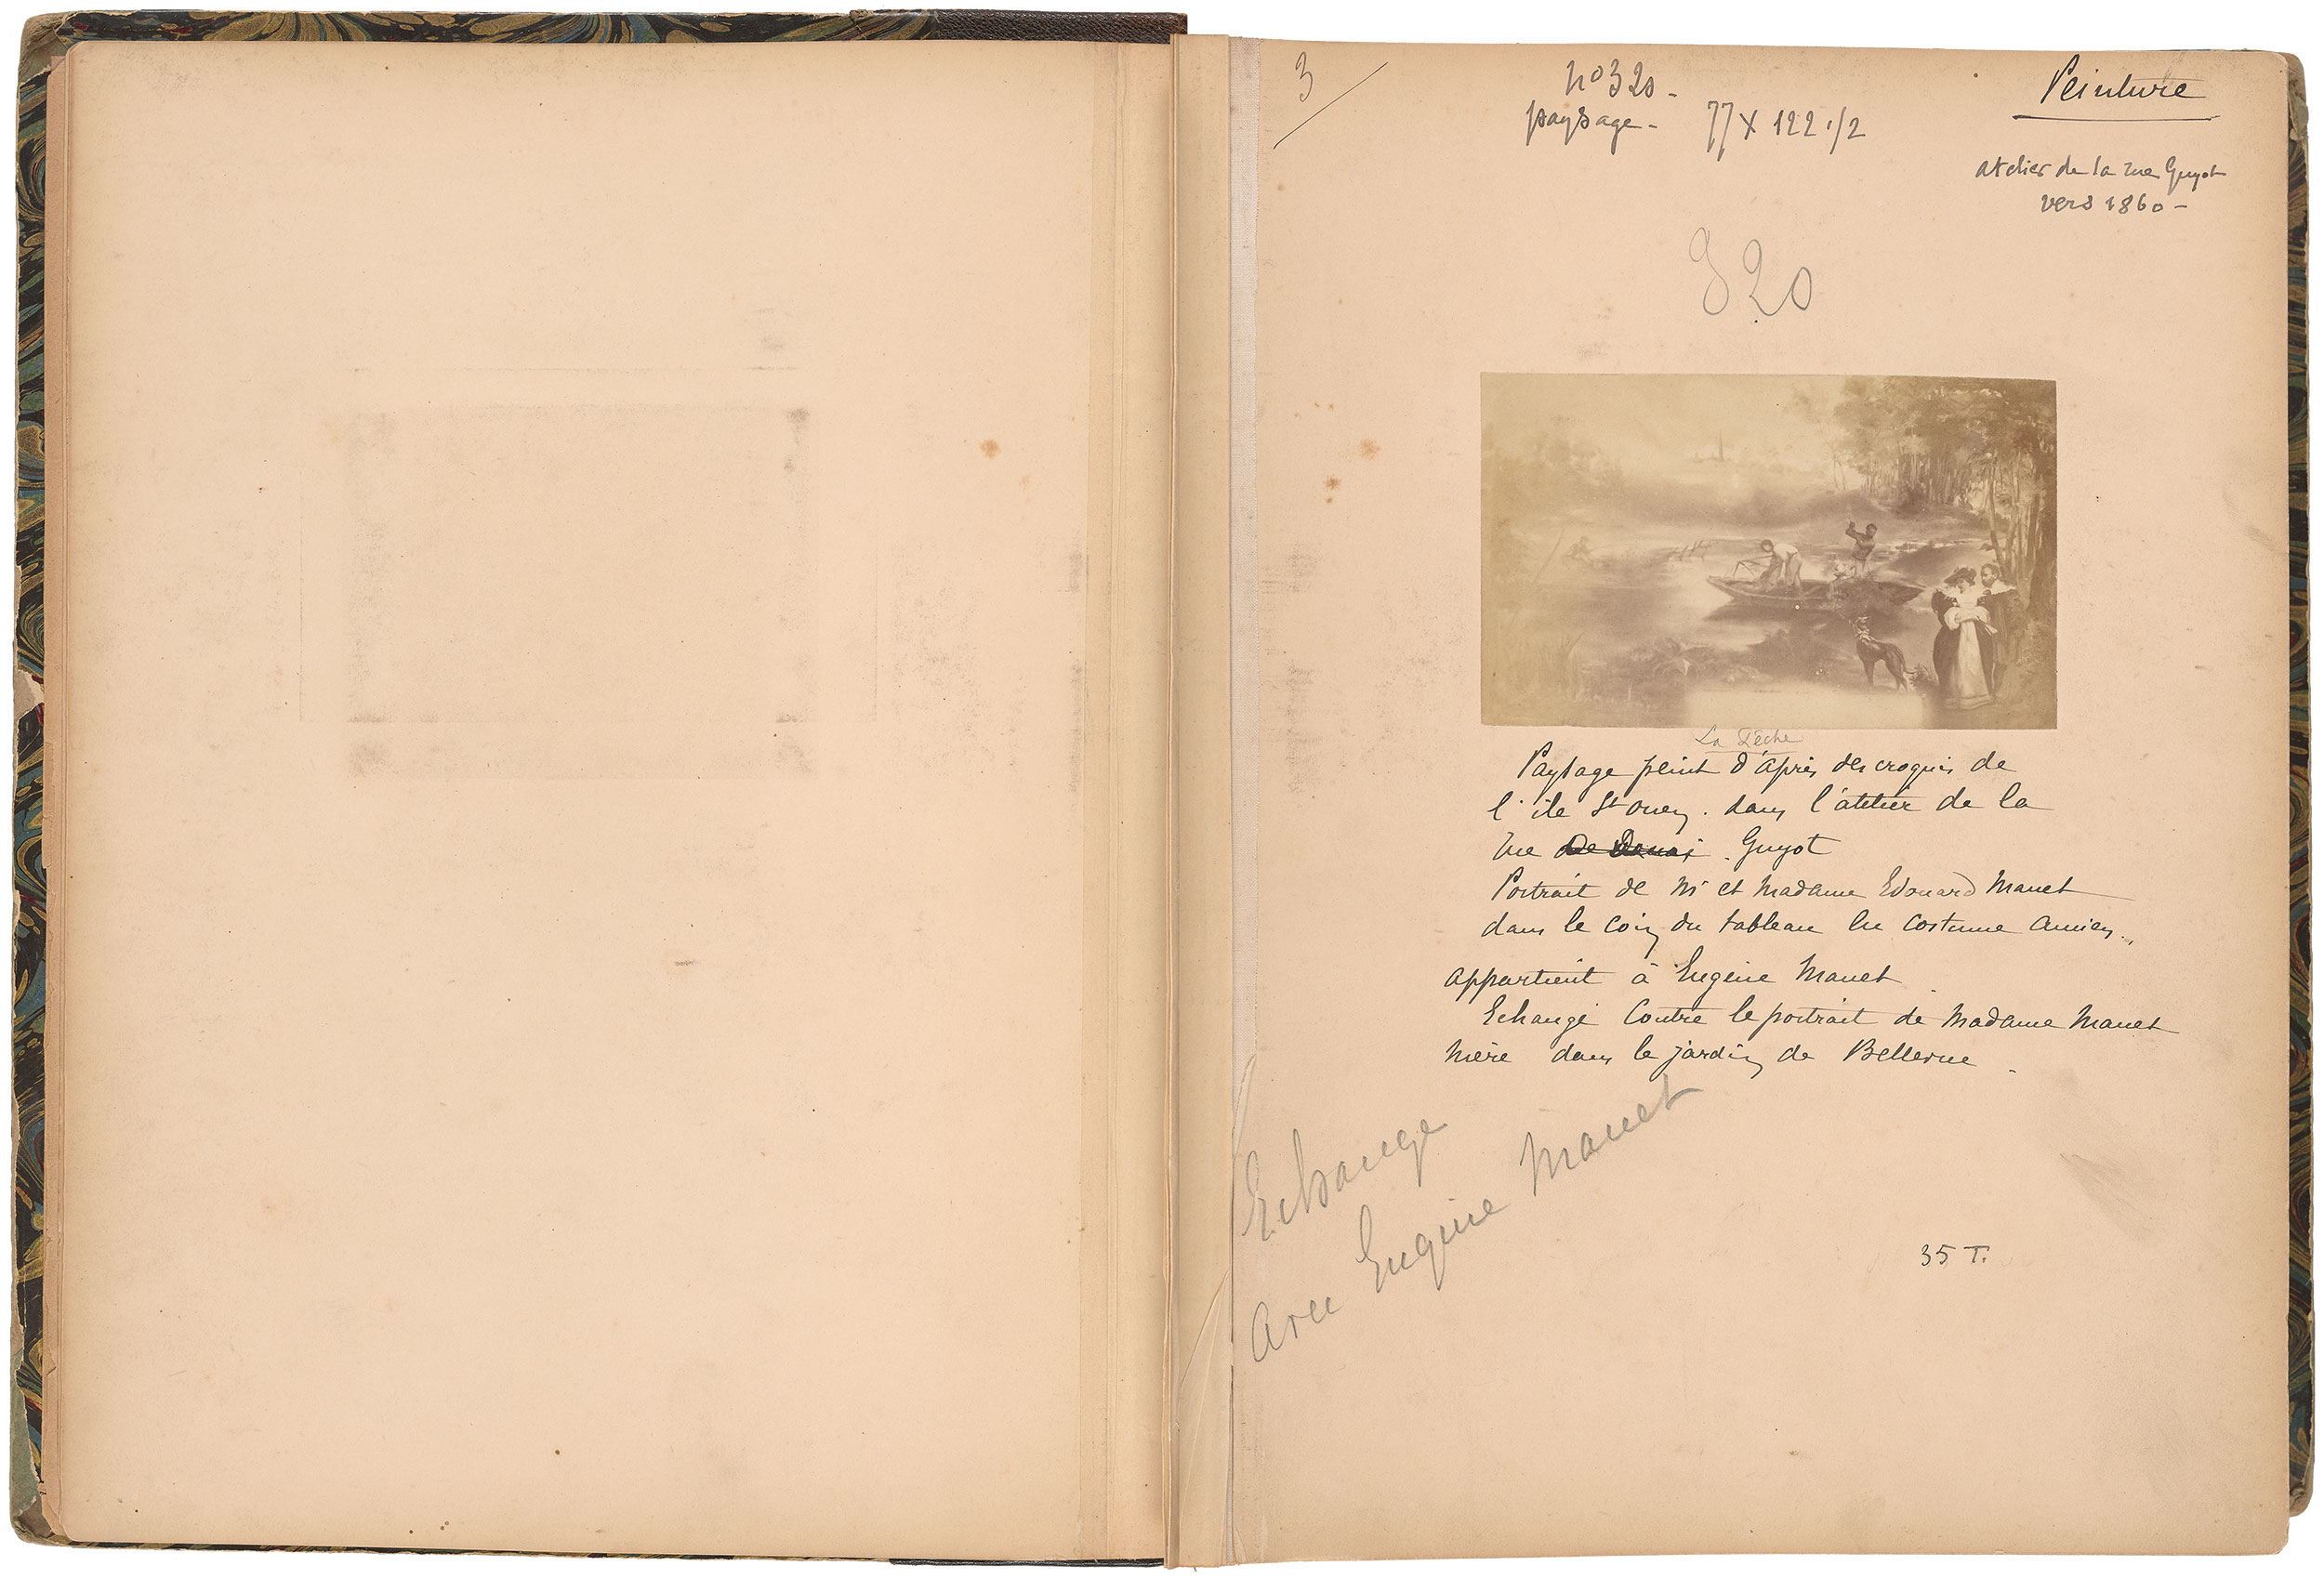 3
no 320 -
paysage - 77 x 122 1/2
Peinture
atelier de la rue Guyot
vers 1860 -
320
La Pêche
Paysage peint d'après des croquis de
l'île St Ouen. dans l'atelier de la
rue de Douai . Guyot
Portrait de Mr et Madame Edouard Manet
dans le coin du tableau en costume ancien.
appartient à Eugène Manet
Echangé contre le portrait de Madame Manet
mère dans le jardin de Bellevue.
Echange
avec Eugène Manet
35 T.